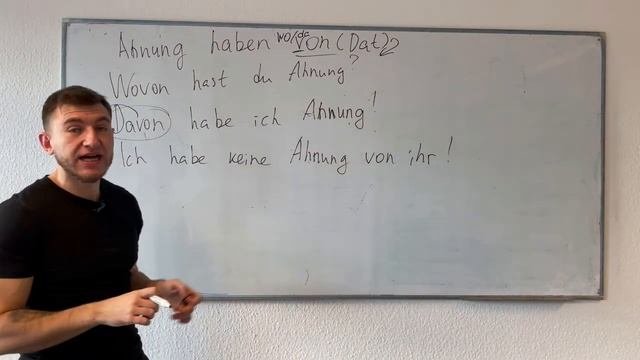 Ahnung haben wo/da von (Dat)2
Wovon hast du Ahnung?
Davon habe ich Ahnung!
Ich habe keine Ahnung von ihr!